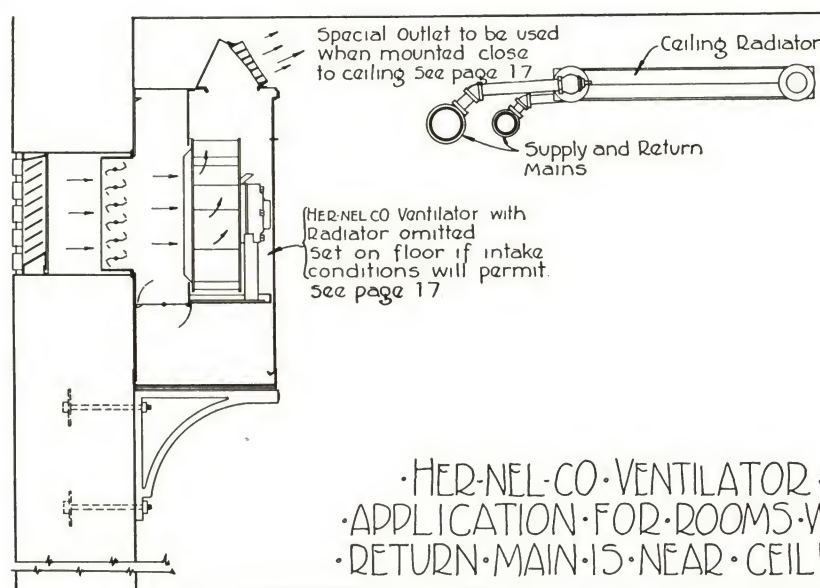 Special Outlet to be used
when mounted close
to ceiling See page 17
Ceiling Radiator
Supply and Return
Mains
HER-NEL CO Ventilator with
Radiator omitted
set on floor if intake
conditions will permit.
See page 17
·HER-NEL-CO·VENTILATOR·
·APPLICATION·FOR·ROOMS·
·RETURN·MAIN·IS·NEAR·